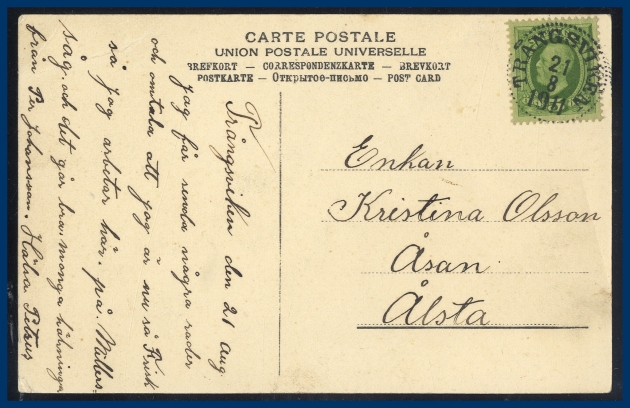 CARTE POSTALE
UNION POSTALE UNIVERSELLE
BREFKORT — CORRESPONDENZKARTE — BREVKORT
POSTKARTE — Открытое-письмо — POST CARD
TRÅNGSVIKEN
21
8
1911
Trångsviken den 21 Aug.
Jag får senda några rader
och omtala att jag är nu så Frisk
så jag arbetar här. på Millers
såg. och det går bra. monga hälsninga
från Per Johansson. Hälsa Petrus
Enkan
Kristina Olsson
Åsan
Ålsta